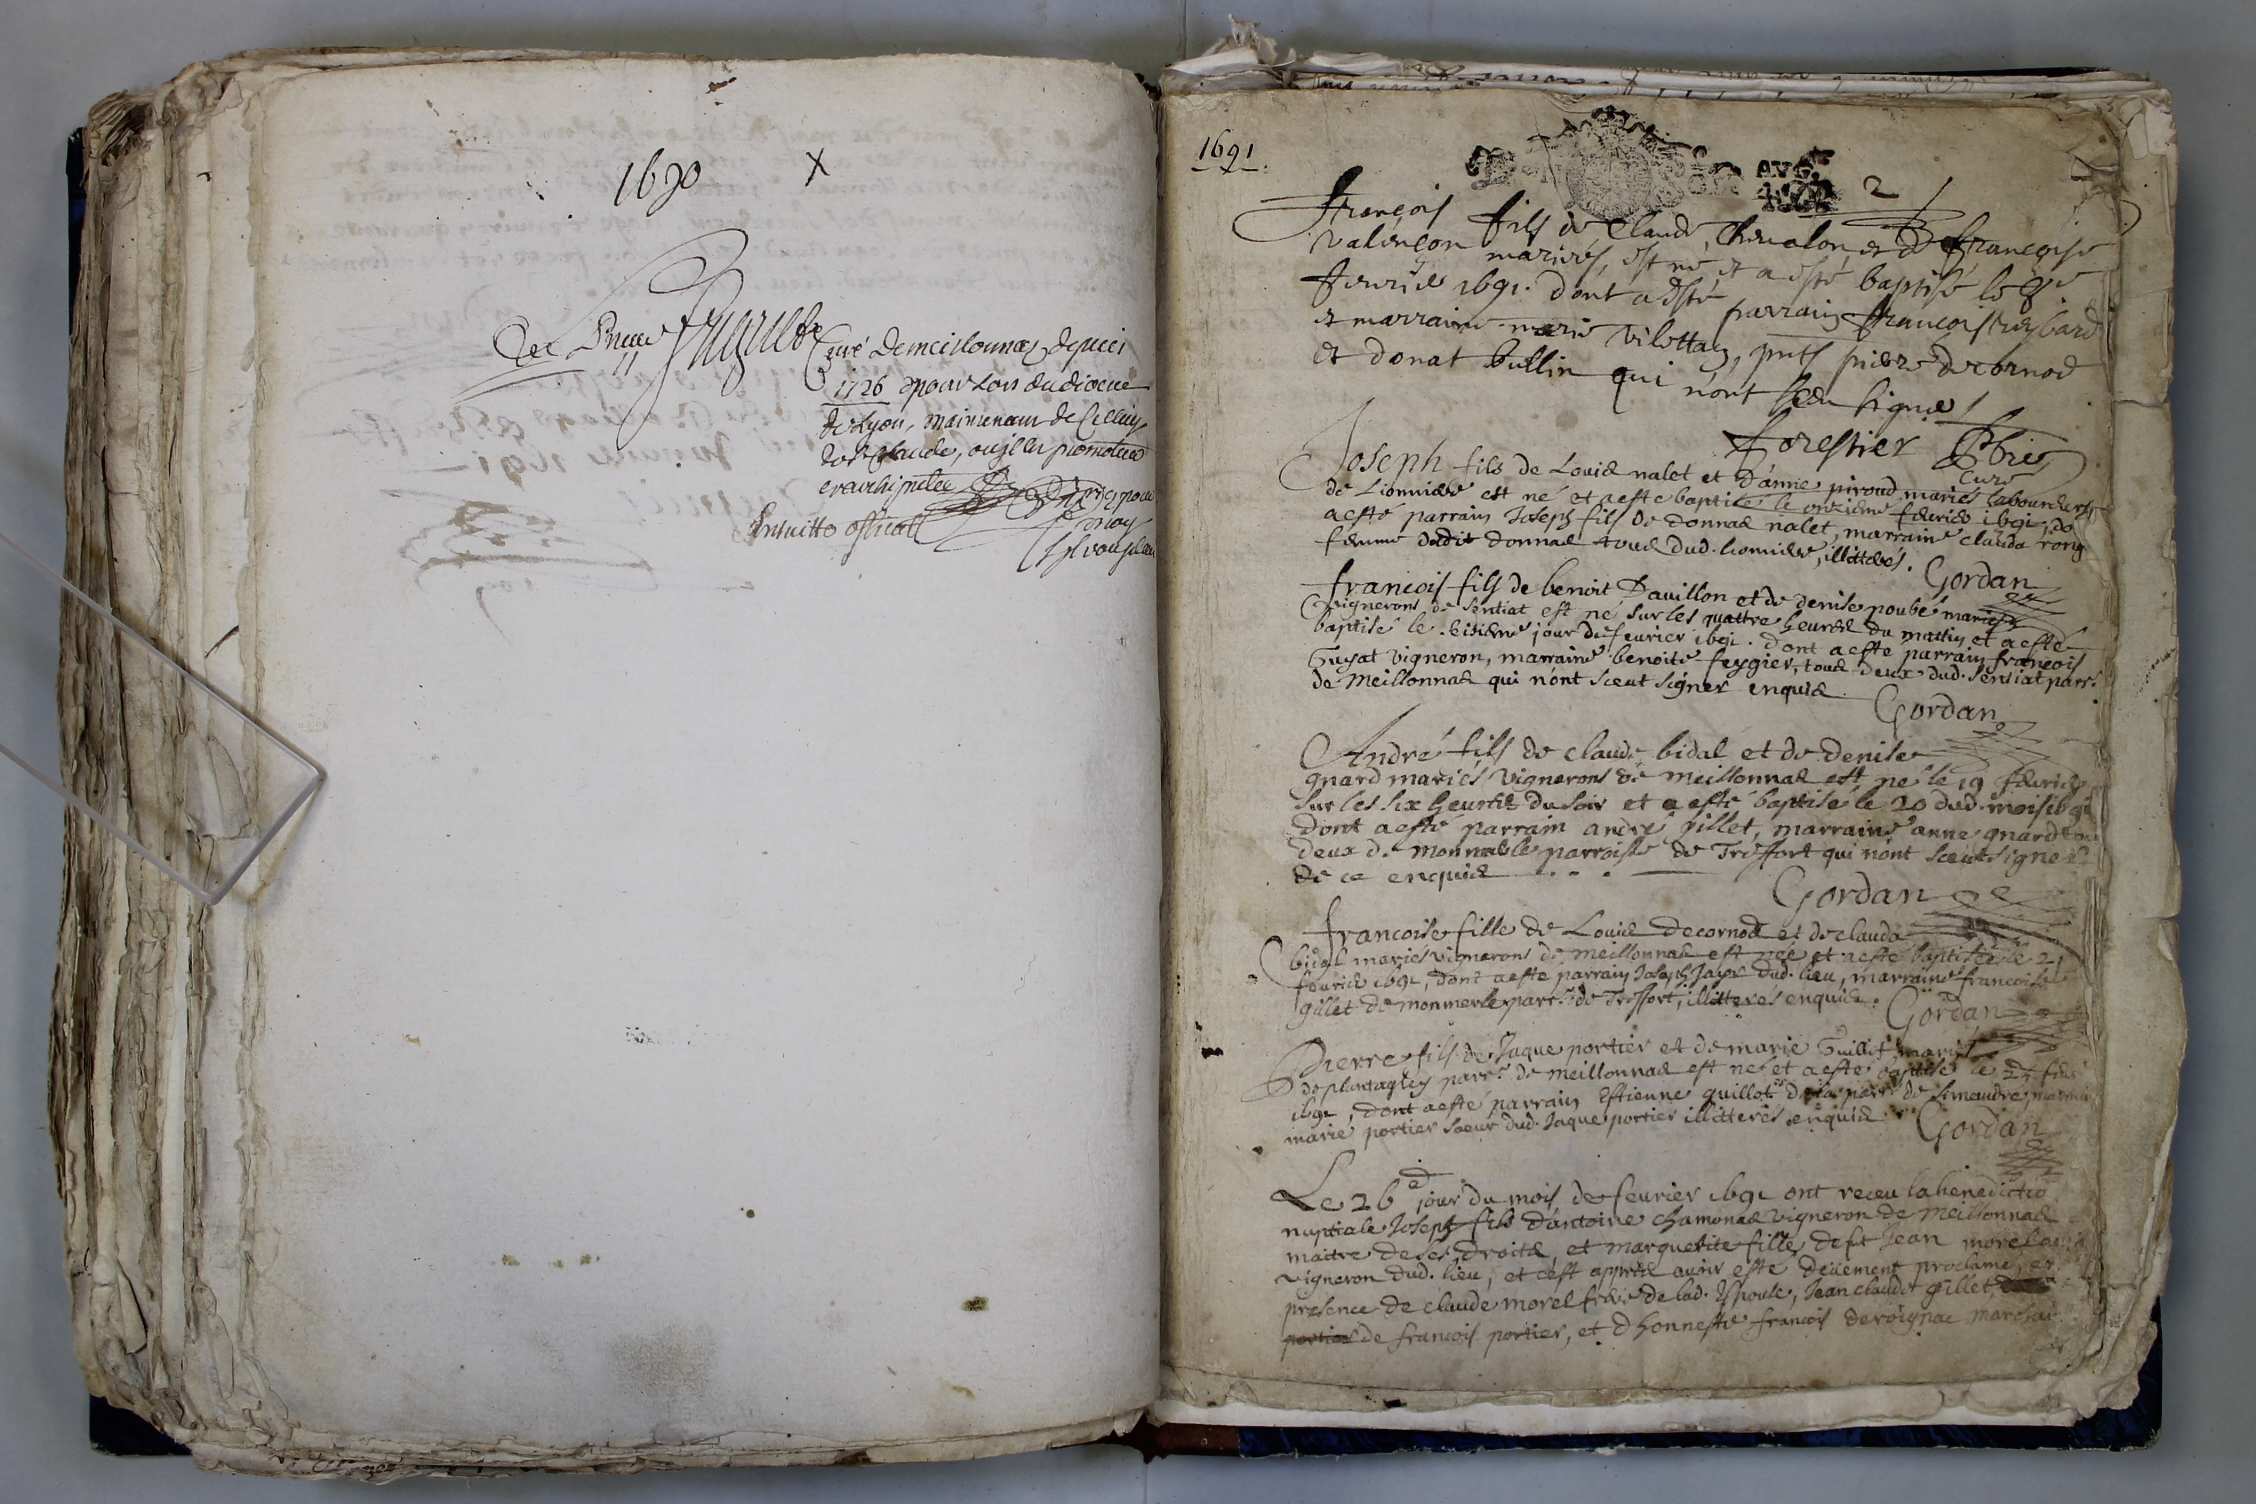 1690 X
Curé de meillonnaz depuis
1726 pour lors du diocese
de Lyon, maintenant de Celluy
de St Claude,
1691
AVG.
2
François fils de Claude Chevalon et de françoise
Valençon mariés, est né et a esté baptisé le 8e
feurier 1691. dont a esté parrain françois
et marraine marie Vilettaz, pnts pierre decornod
et donat bullin qui n'ont sçeu signer
Forestier Pbre
Curé
Joseph fils de Louis nalet et d'anne piroud mariés laboureurs
de Lionnieres est né et a esté baptisé le onzieme feurier 1691, do
a esté parrain Joseph fils de donnas nalet, marraine clauda rong
femme dudit donnas tous dud. lionnieres, illitterés. Gordan
françois fils de benoit Pauillon et de denise poubé mariés
vignerons de sentiat est né sur les quattre heures du mattin et a esté
baptisé le jour de feurier 1691. dont a esté parrain françois
Guyat vigneron, marraine benoite feygier, tous deux dud. sentiat parr.
de Meillonnas qui n'ont sceut signer enquis
Gordan
André fils de claude bidal et de denise
gnard mariés vignerons de meillonnas est né le 19 feurier
sur les six heures du soir et a esté baptisé le 20 dud. mois 1691
dont a esté parrain andré gillet, marraine anne gnard tou
deux de monmerle parroisse de Treffort qui n'ont sceut signer
de ce enquis
Gordan
françoise fille de Louis decornod et de clauda
bidal mariés vignerons de meillonnas est née et a esté baptisée le 21
feurier 1691, dont a esté parrain Joseph Jayr dud. lieu, marraine françoise
gillet de monmerle parr. de Treffort, illitterés enquis. Gordan
Pierre fils de Jaque portier et de marie Guillot mariés
de plantaglay parr. de meillonnas est né et a esté baptisé le
1691, dont a esté parrain Estienne guillot de la parr. de simandre marrain
marie portier soeur dud. Jaque portier illitterés enquis Gordan
Le 26 jour du mois de feurier 1691 ont receu la benedictio
nuptiale Joseph fils d'antoine chamonas vigneron de Meillonnas
maitre de ses droits, et marguerite fille de ft Jean morel
vigneron dud. lieu, et c'est apprés auoir esté deüement proclamé, en
presence de claude morel frere de lad. Espouse, Jean claude gillet,
portier de françois portier, et d'honneste françois derognac marchan